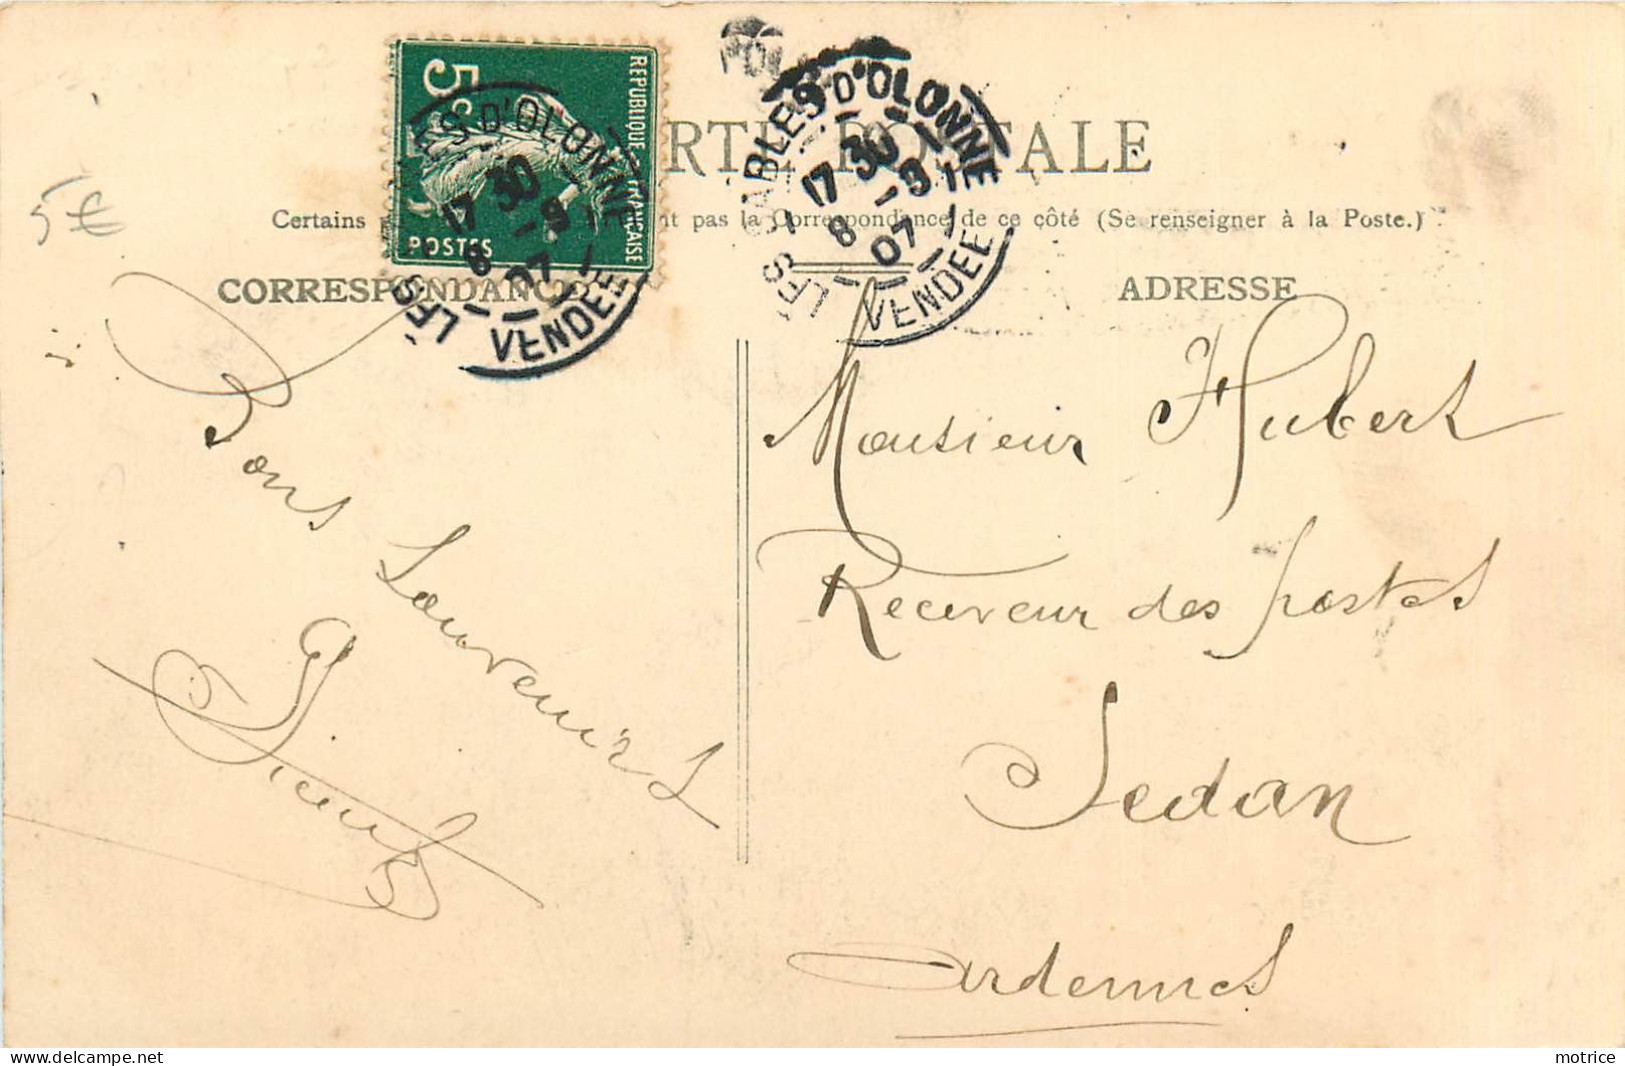 5€
5c
REPUBLIQUE FRANÇAISE
POSTES
LES SABLES D'OLONNE
17 30
8 -9
07
VENDEE
LES SABLES D'OLONNE
17 30
8 -9
07
VENDEE
RTE POSTALE
Certains nt pas la Correspondance de ce côté (Se renseigner à la Poste.)
CORRESPONDANCE
Bons Souvenirs
ADRESSE
Monsieur Hubert
Receveur des postes
Sedan
Ardennes
motrice